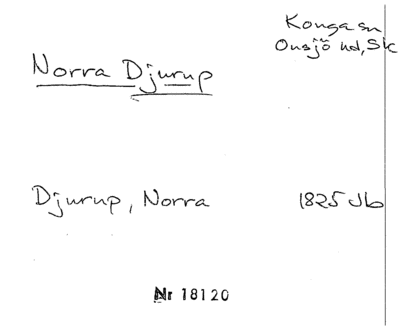 Konga sn
Onsjö hd, Sk
Norra Djurup
Djurup, Norra 1825 Jb
Nr 18120